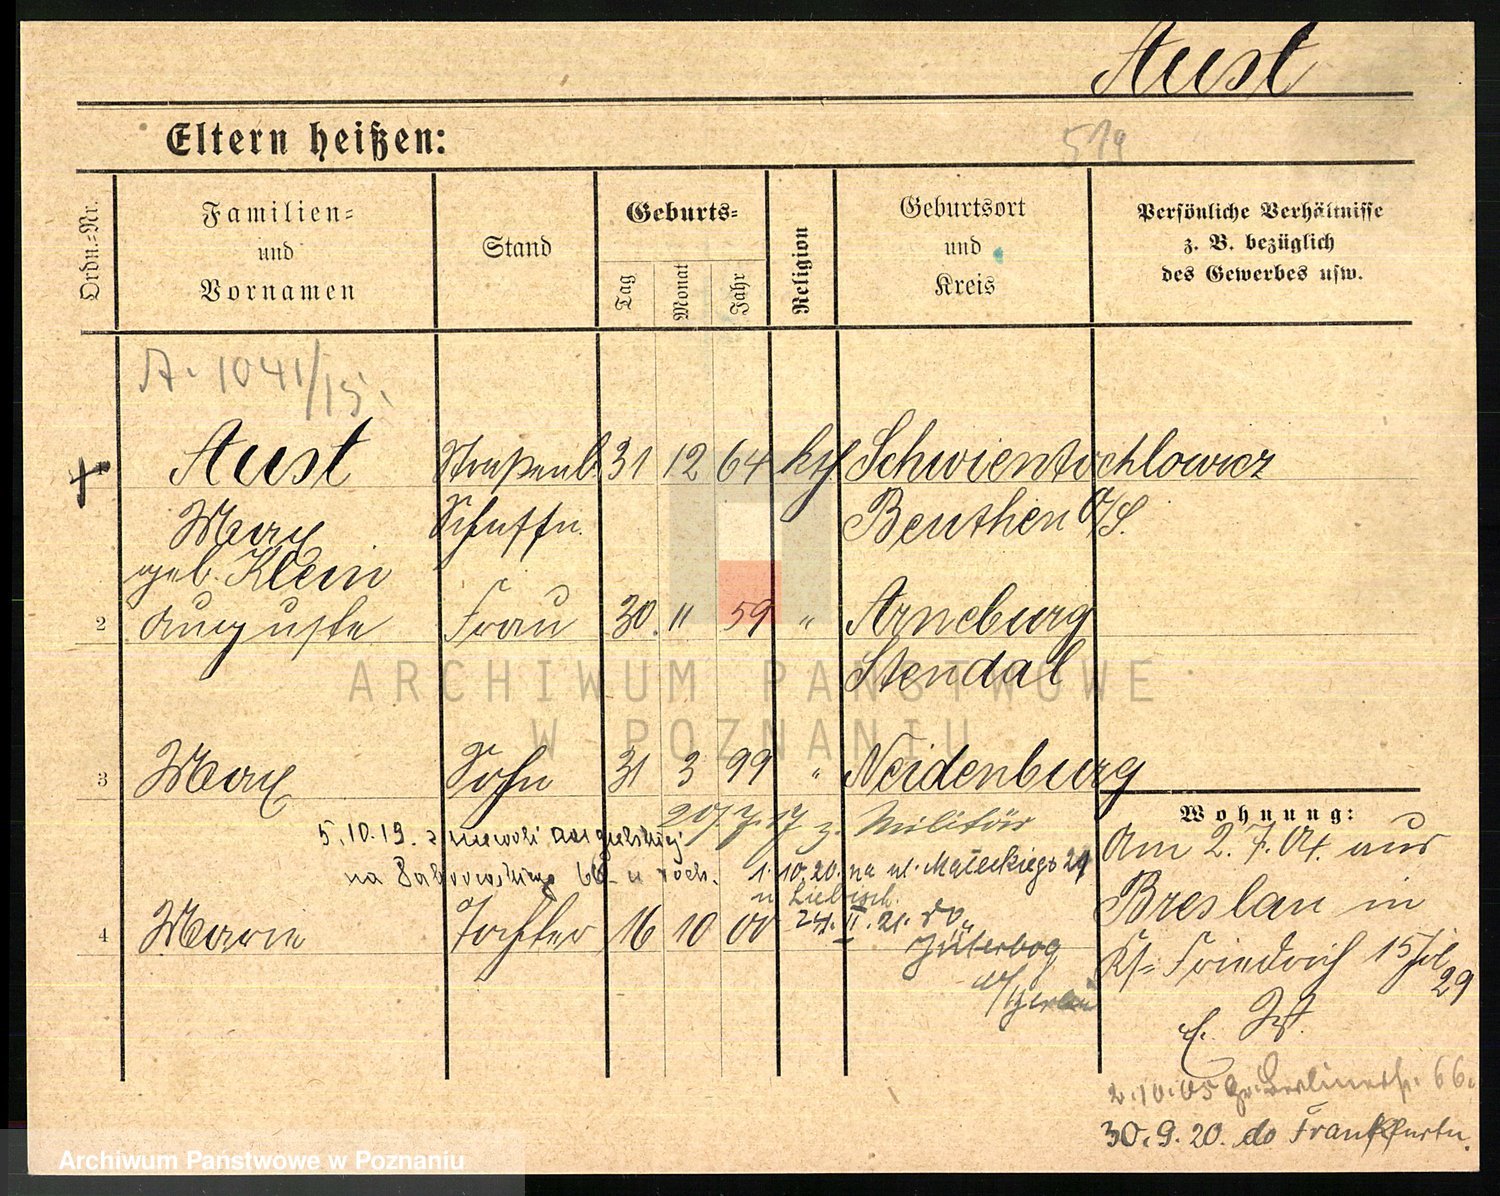 Aust
Eltern heißen:
519
Ordn.-Nr.
Familien-
und
Vornamen
Stand
Geburts-
Tag
Monat
Jahr
Religion
Geburtsort
und
Kreis
Persönliche Verhältnisse
z. B. bezüglich
des Gewerbes usw.
A. 1041/15.
1 Aust Straßenb. 31 12 64 kth Schwientochlowicz
Max Schaffn. Beuthen O/S.
geb. Klein
2 Auguste Frau 30. " 59 " Arneburg
Stendal
3 Max Sohn 31 3 99 " Neidenburg
20/7.17 z. Militär
5.10.19. z niewoli
na Dąbrowskiego 66
1.10.20. na ul. Małeckiego 29
u Liebisch.
24.II.21. do
4 Marie Tochter 16 10 00
Jüterbog
Wohnung:
Am 2.7.04. aus
Breslau in
Friedrich 15
29
2.10.05 Gr. Berlinerstr. 66.
30.9.20. do Frankfurtu.
ARCHIWUM PAŃSTWOWE
W POZNANIU
Archiwum Państwowe w Poznaniu